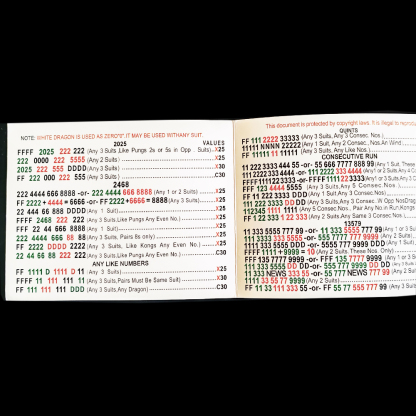 NOTE: WHITE DRAGON IS USED AS ZERO"0". IT MAY BE USED WITH ANY SUIT.
2025 VALUES
FFFF 2025 222 222 (Any 3 Suits, Like Pungs 2s or 5s in Opp. Suits) ...X25
222 0000 222 5555 (Any 2 Suits) ...X25
2025 222 555 DDDD (Any 3 Suits) ...X25
FF 222 000 222 555 (Any 3 Suits) ...C30
2468
222 4444 666 8888 -or- 222 4444 666 8888 (Any 1 or 2 Suits) ...X25
FF 2222 + 4444 = 6666 -or- FF 2222 + 6666 = 8888 (Any 3 Suits) ...X25
22 444 66 888 DDDD (Any 1 Suit) ...X25
FFFF 2468 222 222 (Any 3 Suits, Like Pungs Any Even No.) ...X25
FFF 22 44 666 8888 (Any 1 Suit) ...X25
222 4444 666 88 88 (Any 3 Suits, Pairs 8s only) ...X25
FF 2222 DDDD 2222 (Any 3 Suits, Like Kongs Any Even No.) ...X25
22 44 66 88 222 222 (Any 3 Suits, Like Pungs Any Even No.) ...C30
ANY LIKE NUMBERS
FF 1111 D 1111 D 11 (Any 3 Suits) ...X25
FFFF 11 111 111 11 (Any 3 Suits, Pairs Must Be Same Suit) ...X30
FF 111 111 111 DDD (Any 3 Suits Any Dragon) ...C30
This document is protected by copyright laws. It is illegal to
QUINTS
FF 111 2222 33333 (Any 3 Suits, Any 3 Consec. Nos.)
11111 NNNN 22222 (Any 1 Suit, Any 2 Consec., Nos. Any Wind
FF 11111 11 11111 (Any 3 Suits, Any Like Nos.)
CONSECUTIVE RUN
11 222 3333 444 55 -or- 55 666 7777 888 99 (Any 1 Suit, These
111 222 3333 4444 -or- 111 2222 333 4444 (Any 1 or 2 Suits Any 4
FFFF 1111 22 3333 -or- FFFF 1111 22 3333 (Any 1 or 3 Suits
FFF 123 4444 5555 (Any 3 Suits, Any 5 Consec. Nos.)
FF 2222 3333 DDDD (Any 3 Suits, Any
111 222 3333 DD DD (Any 3 Suits, Any 3 Consec. W Opp Nos
112345 1111 1111 (Any 5 Consec Nos., Pair Any No in Run, Kongs
FF 1 22 333 1 22 333 (Any 2 Suits Any Same 3 Consec. Nos.)
13579
11 333 5555 777 99 -or- 11 333 5555 777 99 (Any 1 or 3
111 3333 333 5555 -or- 555 7777 777 9999 (Any 2 Suits
111 333 5555 DDD -or- 5555 777 9999 DDD (Any 1 Suit)
FFFF 1111 + 9999 = 10 (Any 2 Suits, These Nos. Only)
FFF 135 7777 9999 -or- FFF 135 7777 9999 (Any 1 or 3
111 333 5555 DD DD -or- 555 777 9999 DD DD
11 333 NEWS 333 55 -or- 55 777 NEWS 777 99 (Any 2
1111 33 55 77 9999 (Any 2 Suits)
FF 11 33 111 333 55 -or- FF 55 77 555 777 99 (Any 3 Suits